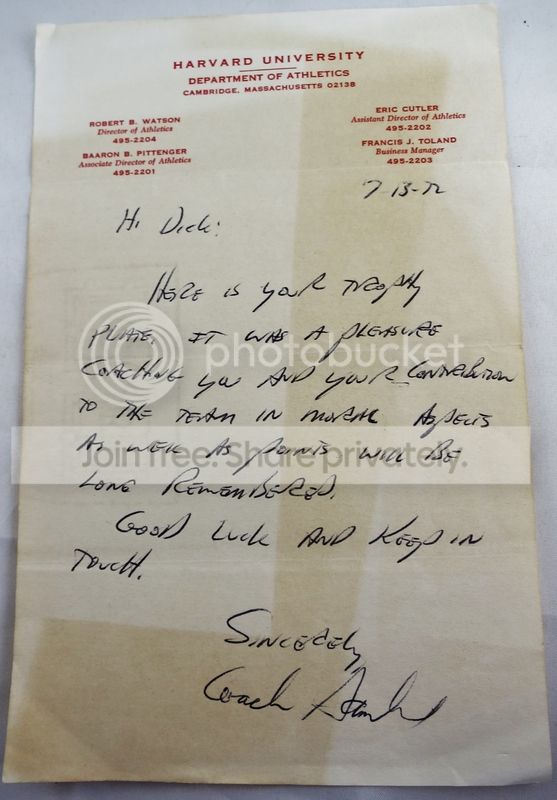 HARVARD UNIVERSITY
DEPARTMENT OF ATHLETICS
CAMBRIDGE, MASSACHUSETTS 02138
ROBERT B. WATSON
Director of Athletics
495-2204
BAARON B. PITTENGER
Associate Director of Athletics
495-2201
ERIC CUTLER
Assistant Director of Athletics
495-2202
FRANCIS J. TOLAND
Business Manager
495-2203
7-13-72
Hi Dick:
HERE IS YOUR TROPHY
PLATE. IT WAS A PLEASURE
COACHING YOU AND YOUR CONTRIBUTION
TO THE TEAM IN MORAL ASPECTS
AS WELL AS POINTS WILL BE
LONG REMEMBERED.
GOOD LUCK AND KEEP IN
TOUCH.
SINCERELY
Coach
photobucket
Join free. Share privately.